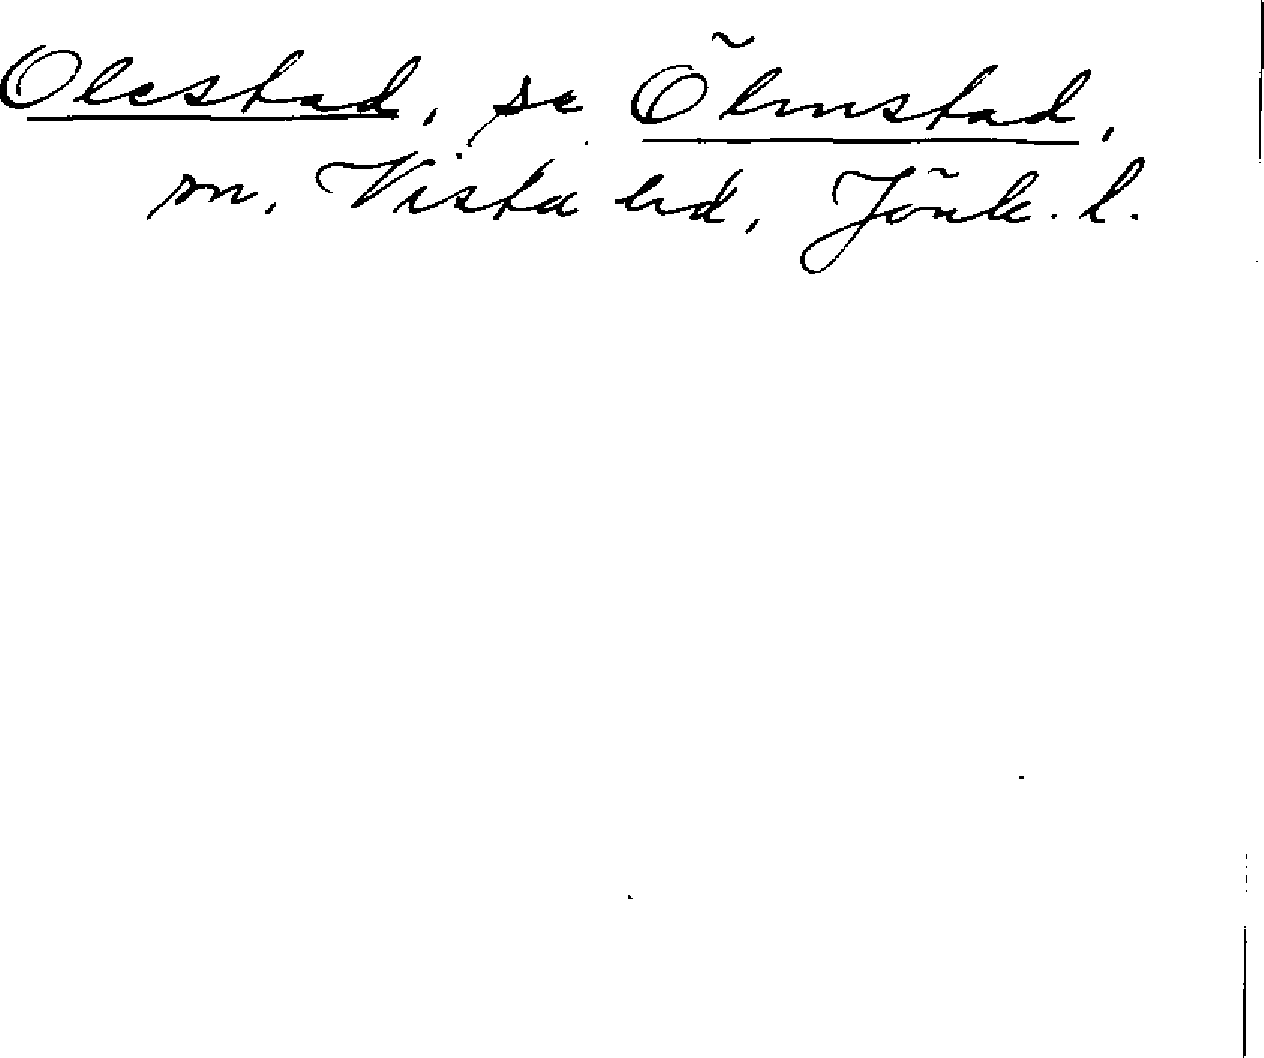 Olestad, se Ölmstad,
sn, Vista hd, Jönk. l.